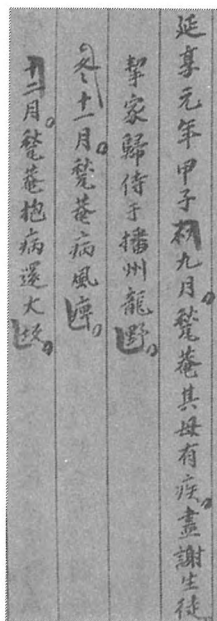 延享元年甲子秋九月。甃菴其母有疾。盡謝生徒
挈家歸侍于播州龍野。
冬十一月。甃菴病風痺。
十二月。甃菴抱病還大坂。